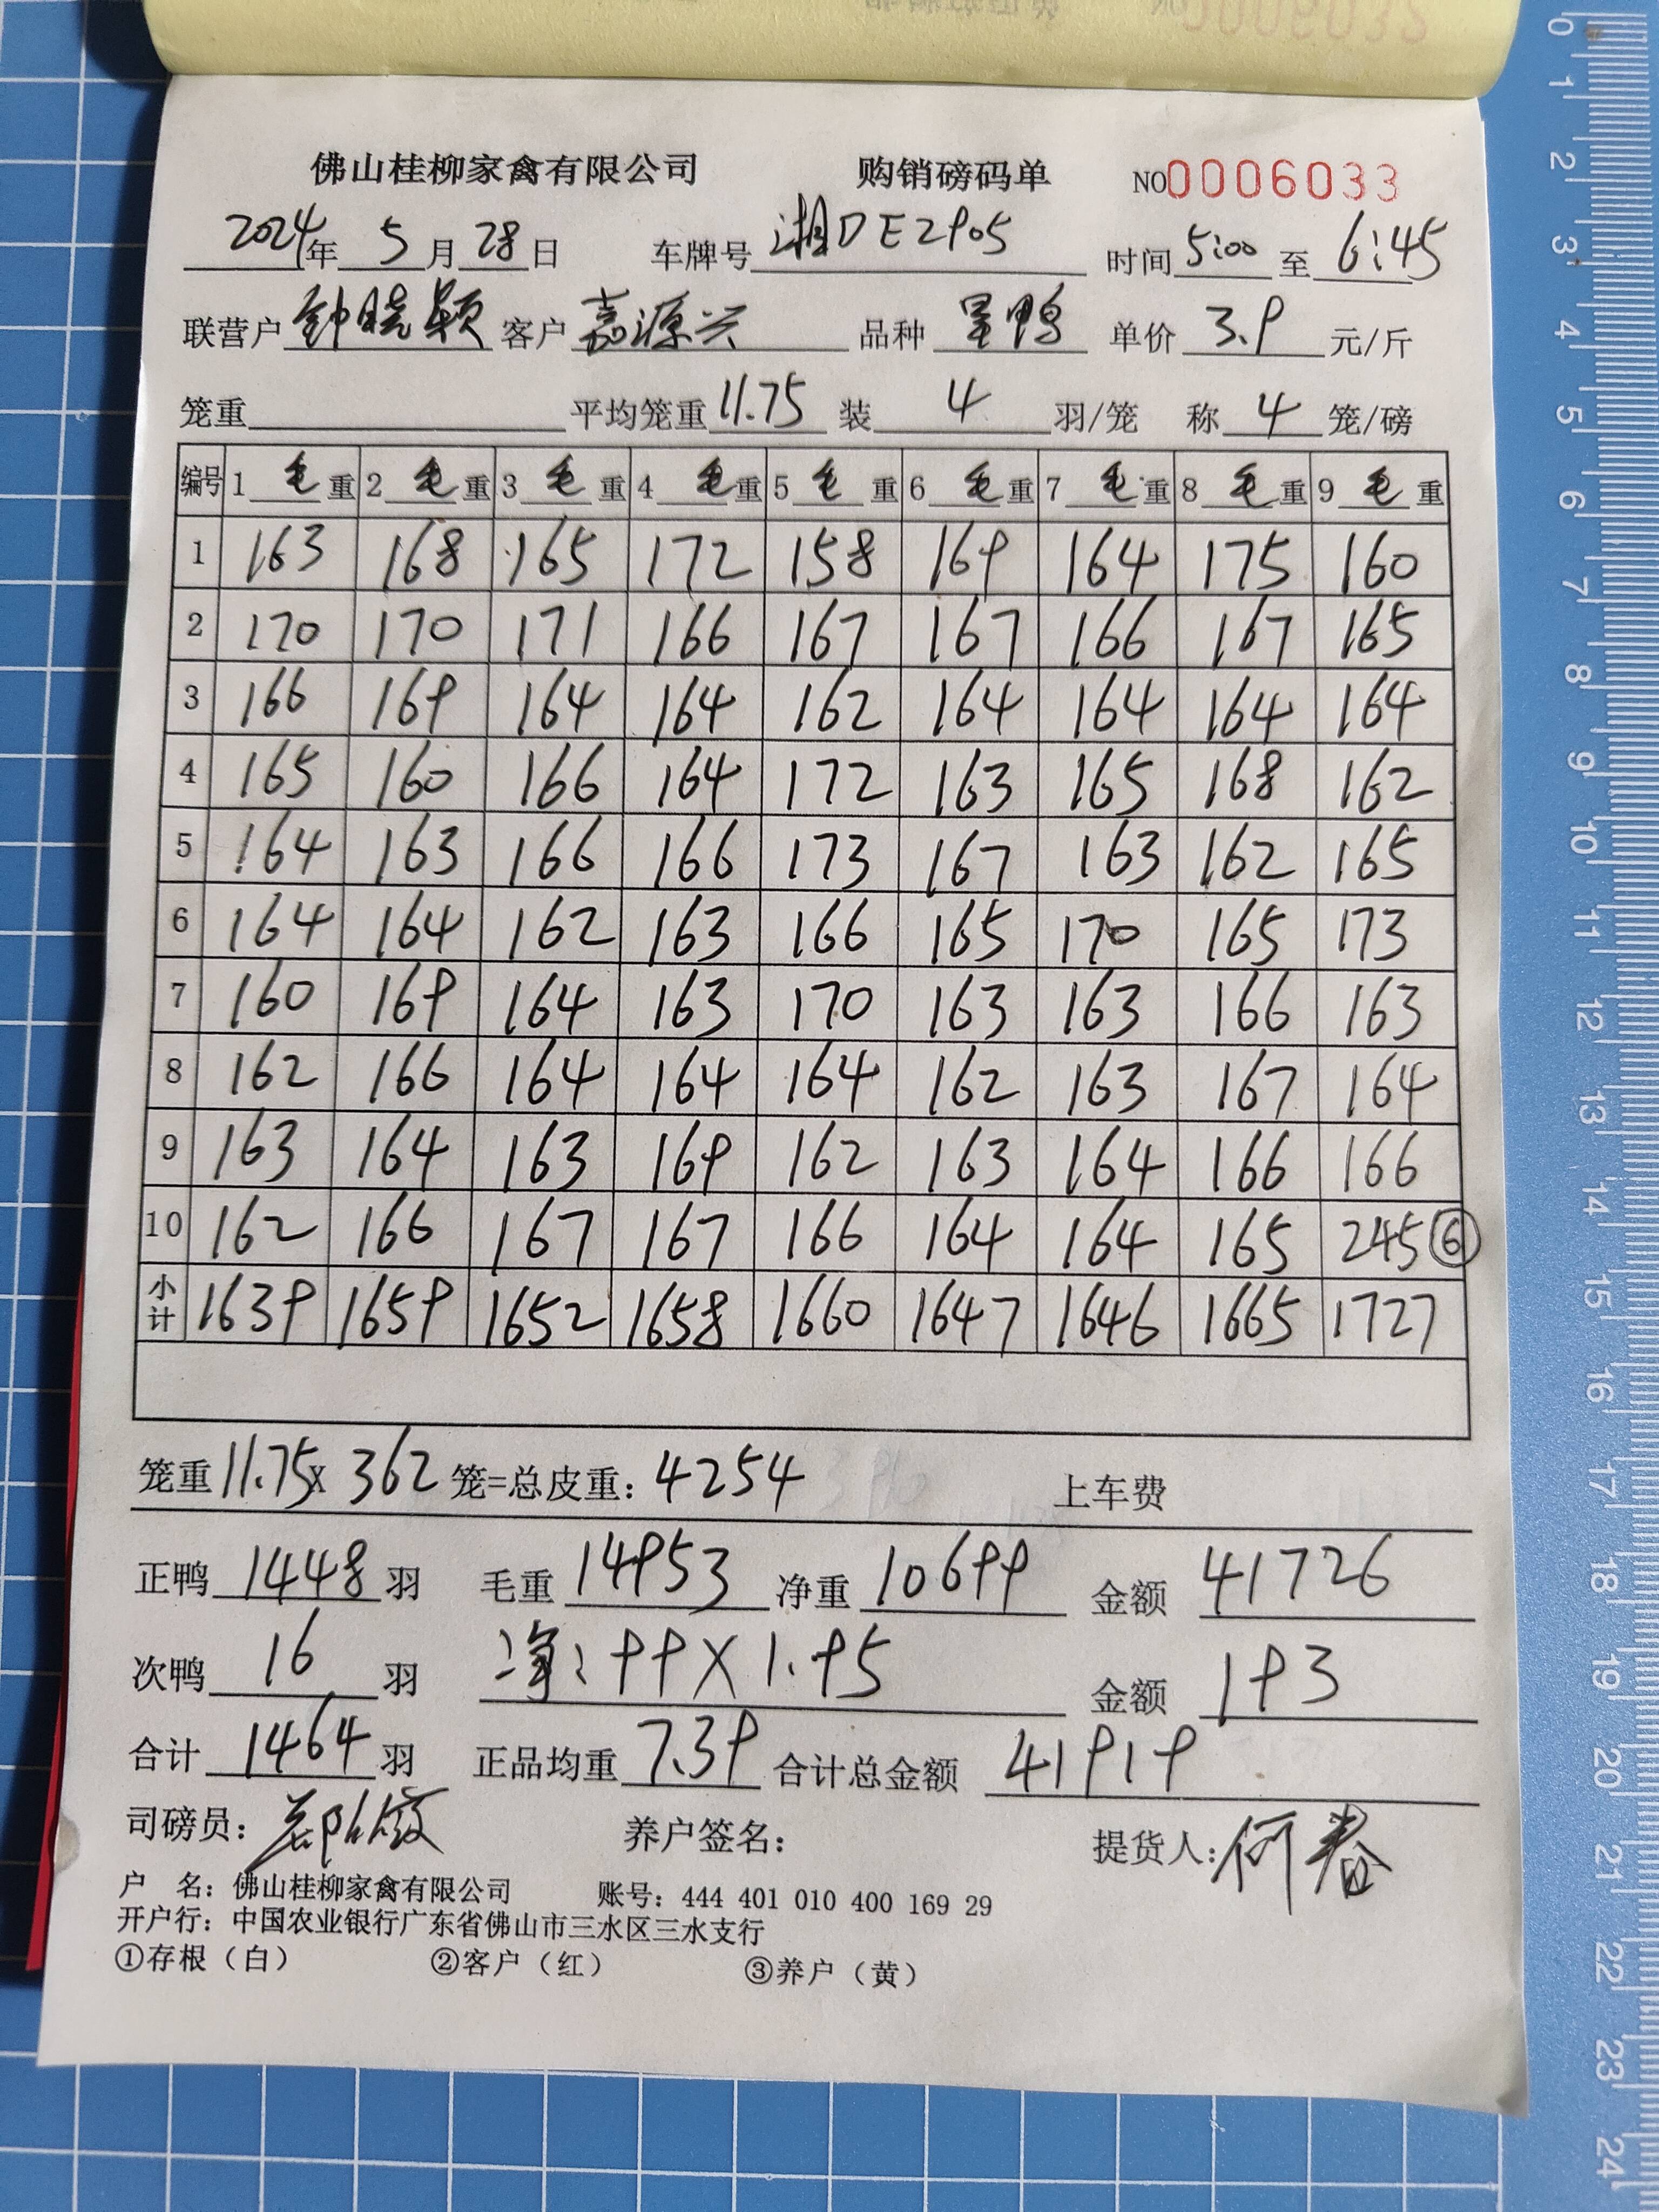 佛山桂柳家禽有限公司 购销磅码单 NO0006033
2024年 5月28日 车牌号 湘DE2905 时间 5:00 至 6:45
联营户 钟晓颖 客户 嘉源兴 品种 鸭 单价 3.9 元/斤
笼重 平均笼重 11.75 装 4 羽/笼 称 4 笼/磅
编号 1 毛重 2 毛重 3 毛重 4 毛重 5 毛重 6 毛重 7 毛重 8 毛重 9 毛重
1 163 168 165 172 158 169 164 175 160
2 170 170 171 166 167 167 166 167 165
3 166 169 164 164 162 164 164 164 164
4 165 160 166 164 172 163 165 168 162
5 164 163 166 166 173 167 163 162 165
6 164 164 162 163 166 165 170 165 173
7 160 169 164 163 170 163 163 166 163
8 162 166 164 164 164 162 163 167 164
9 163 164 163 169 162 163 164 166 166
10 162 166 167 167 166 164 164 165 245 ⑥
小计 1639 1659 1652 1658 1660 1647 1646 1665 1727
笼重 11.75 x 362 笼=总皮重: 4254 上车费
正鸭 1448 羽 毛重 14953 净重 10699 金额 41726
次鸭 16 羽 净: 99 X 1.95 金额 193
合计 1464 羽 正品均重 7.39 合计总金额 41919
司磅员: 养户签名: 提货人: 何春
户 名: 佛山桂柳家禽有限公司 账号: 444 401 010 400 169 29
开户行: 中国农业银行广东省佛山市三水区三水支行
①存根（白） ②客户（红） ③养户（黄）
0 1 2 3 4 5 6 7 8 9 10 11 12 13 14 15 16 17 18 19 20 21 22 23 24